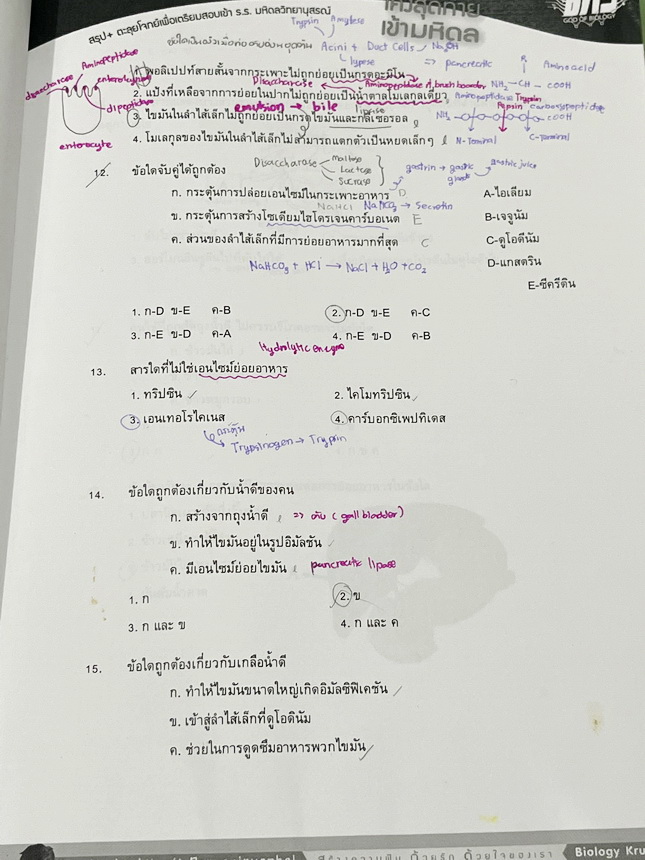 สรุป+ ตะลุยโจทย์เพื่อเตรียมสอบเข้า ร.ร. มหิดลวิทยานุสรณ์
โค้งสุดท้าย
เข้ามหิดล
GOD OF BIOLOGY
Trypsin Amylase
Acini + Duct Cells NaOH
lypese ⇒ pancreatic
R Amino acid
disaccharase Aminopeptidase enterokynase
dipeptidase
enterocyte
1. พอลิเปปท์สายสั้นจากกระเพาะไม่ถูกย่อยเป็นกรดอะมิโน
Disaccharase Aminopeptidase brush boarder NH2 - CH - COOH
2. แป้งที่เหลือจากการย่อยในปากไม่ถูกย่อยเป็นน้ำตาลโมเลกุลเดี่ยว
Aminopeptidase Trypsin Pepsin Carboxypeptidase
emulsion → bile liprse
NH2 COOH
3. ไขมันในลำไส้เล็กไม่ถูกย่อยเป็นกรดไขมันและกลีเซอรอล
4. โมเลกุลของไขมันในลำไส้เล็กไม่สามารถแตกตัวเป็นหยดเล็กๆ
N-Terminal C-Terminal
12. ข้อใดจับคู่ได้ถูกต้อง
Disaccharase Maltase Lactase Sucrase
gastrin → gastric glands gastric juice
ก. กระตุ้นการปล่อยเอนไซม์ในกระเพาะอาหาร D
A-ไอเลียม
NaHCO3 → Secretin
ข. กระตุ้นการสร้างโซเดียมไฮโดรเจนคาร์บอเนต E
B-เจจูนัม
ค. ส่วนของลำไส้เล็กที่มีการย่อยอาหารมากที่สุด C
C-ดูโอดีนัม
NaHCO3 + HCl → NaCl + H2O + CO2
D-แกสตริน
E-ซีครีติน
1. ก-D ข-E ค-B
2. ก-D ข-E ค-C
3. ก-E ข-D ค-A
4. ก-E ข-D ค-B
Hydrolytic enzyme
13. สารใดที่ไม่ใช่เอนไซม์ย่อยอาหาร
1. ทริปซิน
2. ไคโมทริปซิน
3. เอนเทอโรไคเนส
4. คาร์บอกซิเพปทิเดส
กระตุ้น
Trypsinogen → Trypsin
14. ข้อใดถูกต้องเกี่ยวกับน้ำดีของคน
ก. สร้างจากถุงน้ำดี ⇒ ตับ (gall bladder)
ข. ทำให้ไขมันอยู่ในรูปอิมัลชัน
ค. มีเอนไซม์ย่อยไขมัน pancreatic lipase
1. ก
2. ข
3. ก และ ข
4. ก และ ค
15. ข้อใดถูกต้องเกี่ยวกับเกลือน้ำดี
ก. ทำให้ไขมันขนาดใหญ่เกิดอิมัลซิฟิเคชัน
ข. เข้าสู่ลำไส้เล็กที่ดูโอดินัม
ค. ช่วยในการดูดซึมอาหารพวกไขมัน
Biology Kru